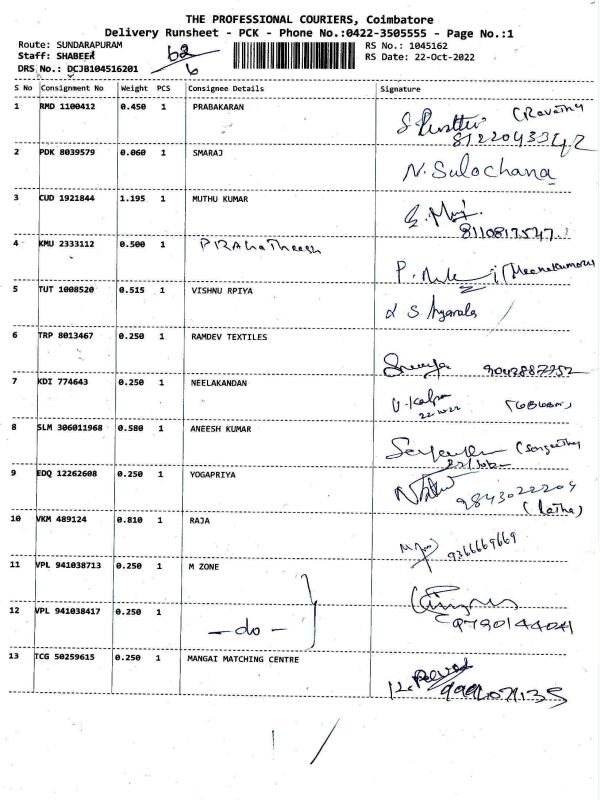 THE PROFESSIONAL COURIERS, Coimbatore
Delivery Runsheet - PCK - Phone No.:0422-3505555 - Page No.:1
Route: SUNDARAPURAM RS No.: 1045162
Staff: SHABEER 62/6 RS Date: 22-Oct-2022
DRS No.: DCJB104516201
S No Consignment No Weight PCS Consignee Details Signature
1 RMD 1100412 0.450 1 PRABAKARAN (Revathy
8122043342
2 PDK 8039579 0.060 1 SMARAJ N. Sulochana
3 CUD 1921844 1.195 1 MUTHU KUMAR
8110817547
4 KMU 2333112 0.500 1 PIRAhaTheesh (Meenakumari)
5 TUT 1008520 0.515 1 VISHNU RPIYA
6 TRP 8013467 0.250 1 RAMDEV TEXTILES
7 KDI 774643 0.250 1 NEELAKANDAN
8 SLM 306011968 0.580 1 ANEESH KUMAR
9 EDQ 12262608 0.250 1 YOGAPRIYA 9843022204
(Latha)
10 VKM 489124 0.810 1 RAJA 9366669669
11 VPL 941038713 0.250 1 M ZONE
12 VPL 941038417 0.250 1 - do -
13 TCG 50259615 0.250 1 MANGAI MATCHING CENTRE